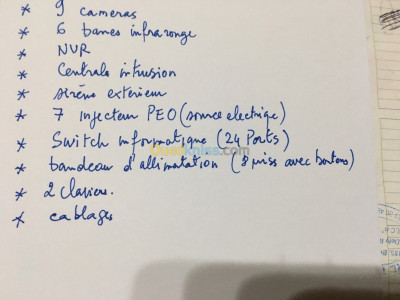 * 9 cameras
* 6 barres infrarouge
* NVR
* Centrale intrusion
* sirène exterieur
* 7 injecteur PEO (source electriqe)
* Switch informatique (24 Ports)
* bandeau d'allimatation (8 priss avec boutons)
* 2 Claviers.
* cablages
Ouedkniss.com